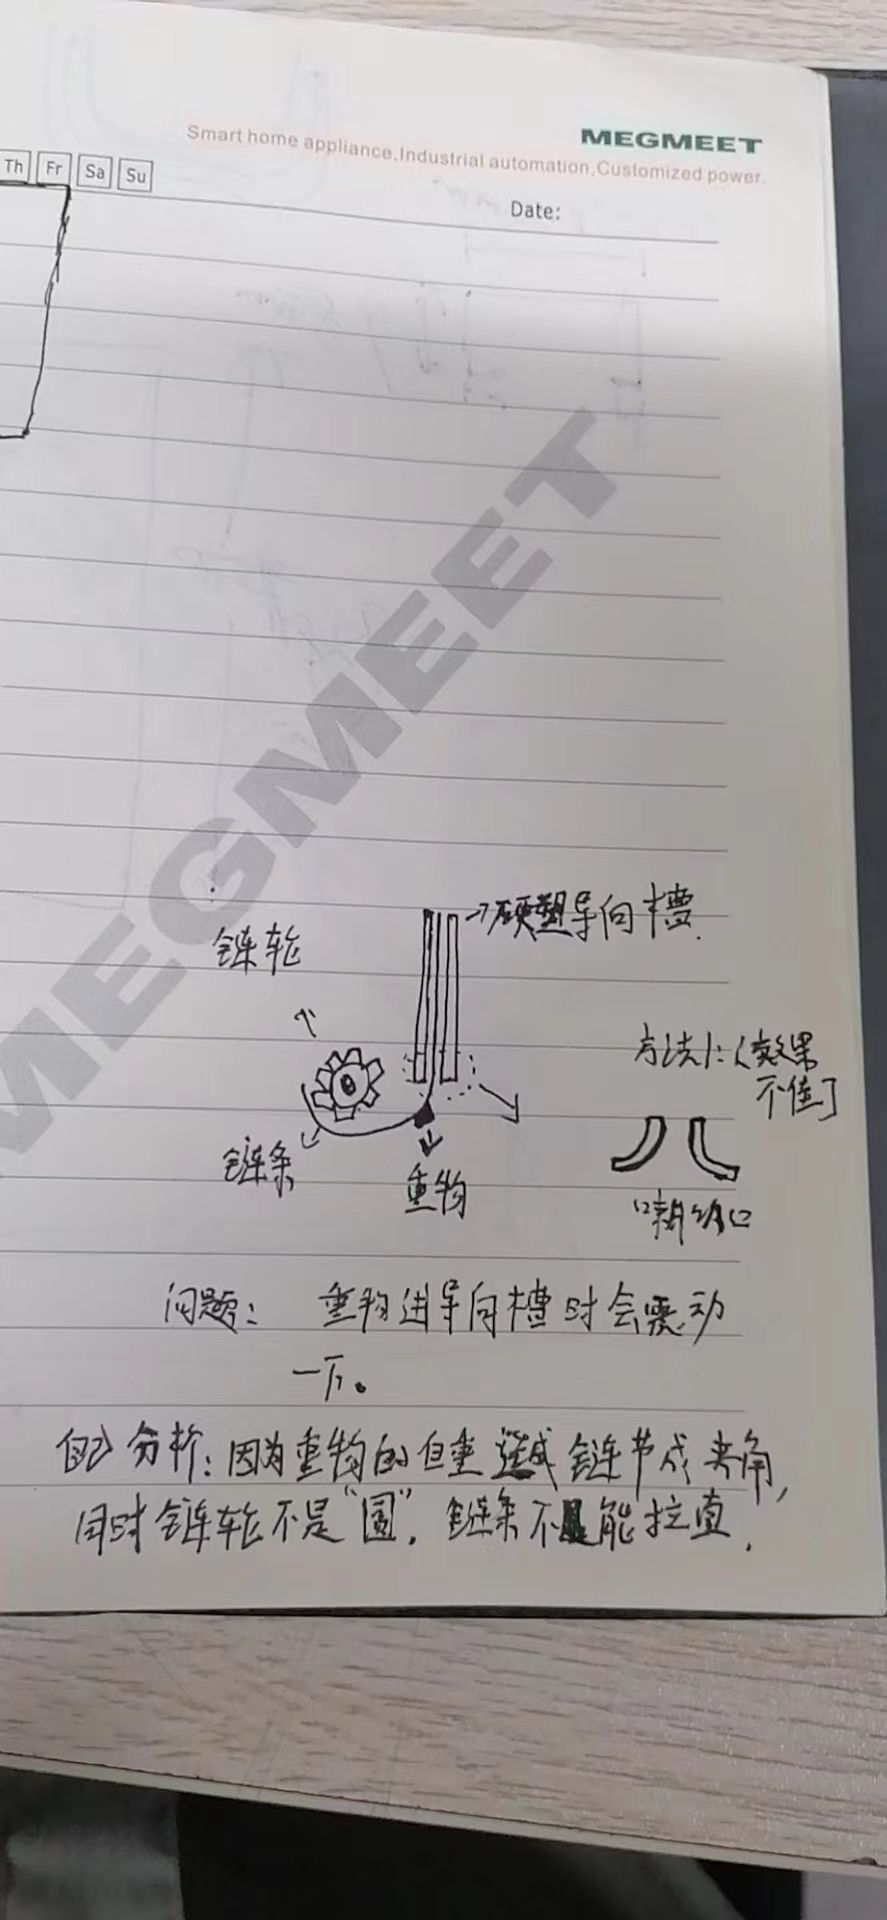 MEGMEET
Smart home appliance,Industrial automation,Customized power.
Th Fr Sa Su
Date:
MEGMEET
→硬塑导向槽
链轮
方法1:(效果
不佳)
链条
重物
喇叭口
问题: 重物进导向槽时会震动
一下。
自己分析:因为重物的自重造成链节成夹角,
同时链轮不是“圆”.链条不能拉直.